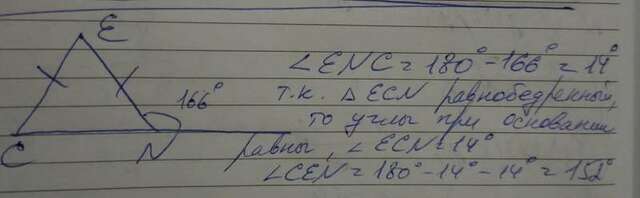 E
∠ENC = 180° - 166° = 14°
166°
т.к. △ECN равнобедренный,
то углы при основании
C N равны, ∠ECN = 14°
∠CEN = 180° - 14° - 14° = 152°